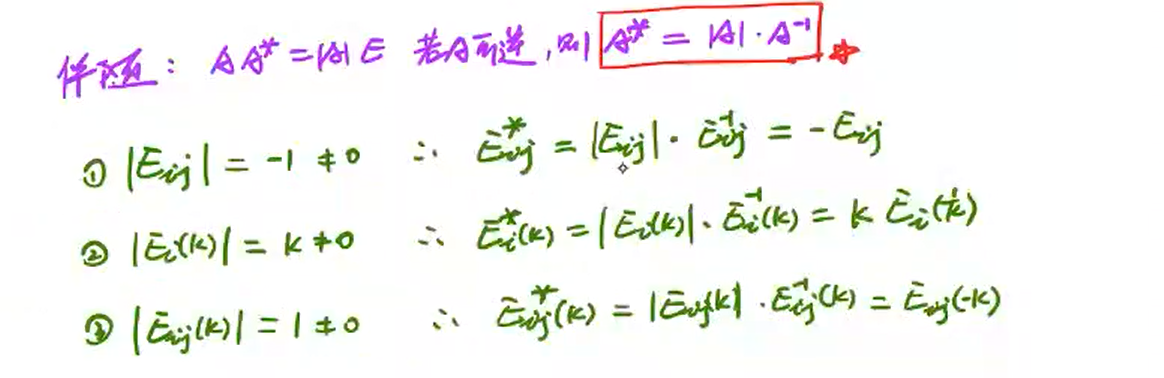 伴随: AA* = |A|E 若A可逆,则 A* = |A|·A⁻¹ ☆
① |Eij| = -1 ≠ 0 ∴ Eij* = |Eij|·Eij⁻¹ = -Eij
② |Ei(k)| = k ≠ 0 ∴ Ei*(k) = |Ei(k)|·Ei⁻¹(k) = k Ei(1/k)
③ |Eij(k)| = 1 ≠ 0 ∴ Eij*(k) = |Eij(k)|·Eij⁻¹(k) = Eij(-k)